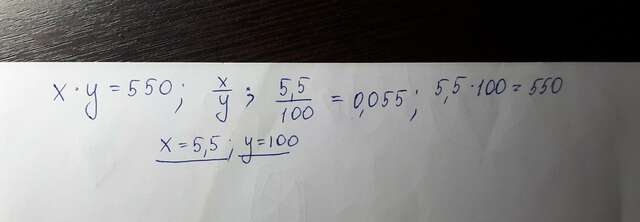 x · y = 550; x/y; 5,5/100 = 0,055; 5,5 · 100 = 550
x = 5,5; y = 100